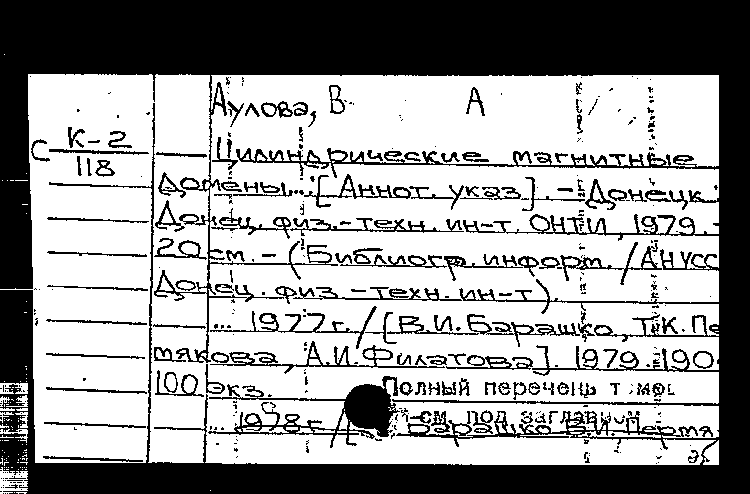 Аулова, В А
С К-2
118
Цилиндрические магнитные
домены...: [Аннот. указ]. - Донецк:
Донец. физ.-техн. ин-т. ОНТИ, 1979. -
20 см. - (Библиогр. информ. / АН УСС
Донец. физ.-техн. ин-т).
... 1977г. / [В.И. Барашко, Т.К. Пе
тякова, А.И. Филатова]. 1979. 190
100 экз. Полный перечень
см. под заглавием
... 1978г / [ Барашко В.И. Пертя